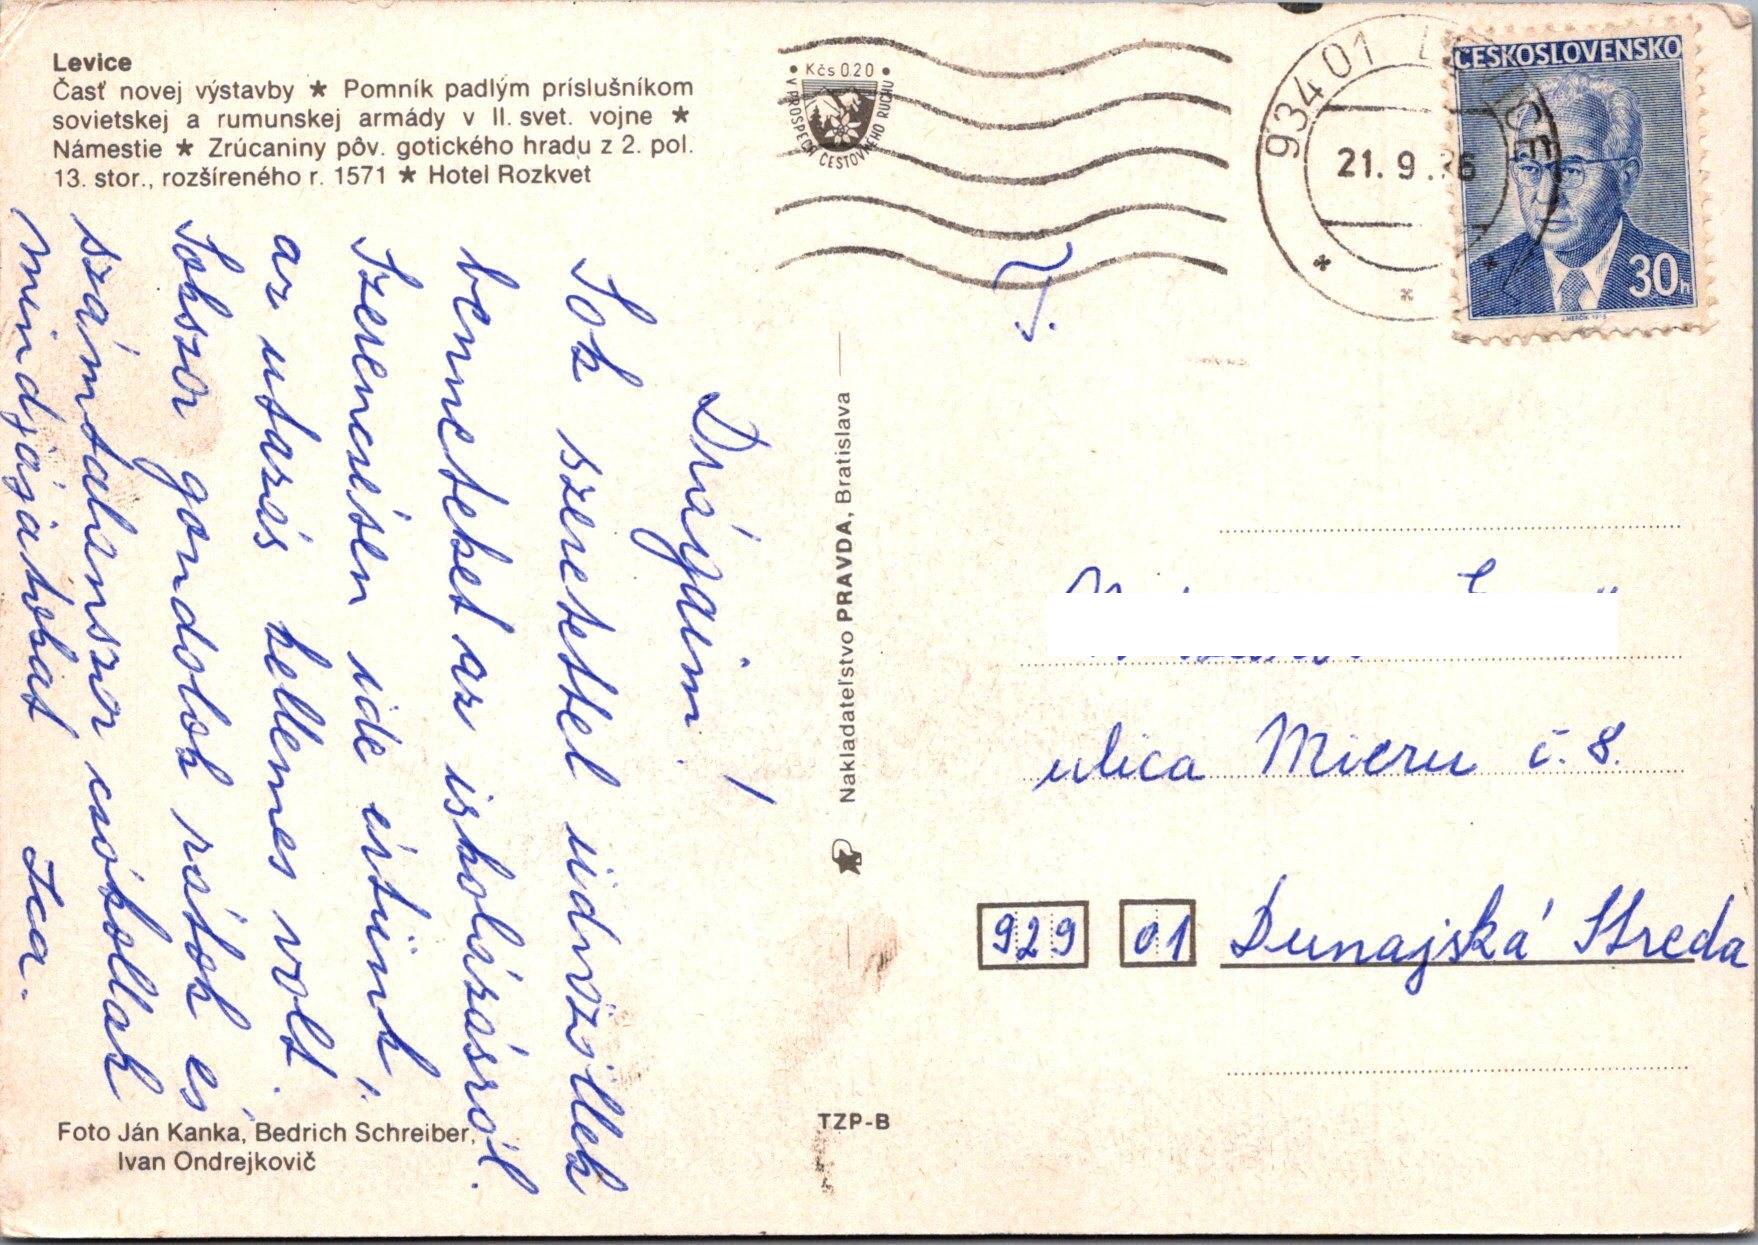 Levice
Časť novej výstavby ★ Pomník padlým príslušníkom
sovietskej a rumunskej armády v II. svet. vojne ★
Námestie ★ Zrúcaniny pôv. gotického hradu z 2. pol.
13. stor., rozšíreného r. 1571 ★ Hotel Rozkvet
Drágáim!
Sok szeretettel üdvözöllek
benneteket az iskolázásról.
Szerencsésen ide értünk,
az utazás kellemes volt.
Sokszor gondolok rátok és
számtalanszor csókollak
mindnyájatokat Ica.
Foto Ján Kanka, Bedrich Schreiber,
Ivan Ondrejkovič
Nakladateľstvo PRAVDA, Bratislava
TZP-B
Kčs 0.20
V PROSPECH CESTOVNÉHO RUCHU
934 01 LEVICE
21. 9. 6
ČESKOSLOVENSKO
30h
ulica Mieru č. 8.
929 01 Dunajská Streda